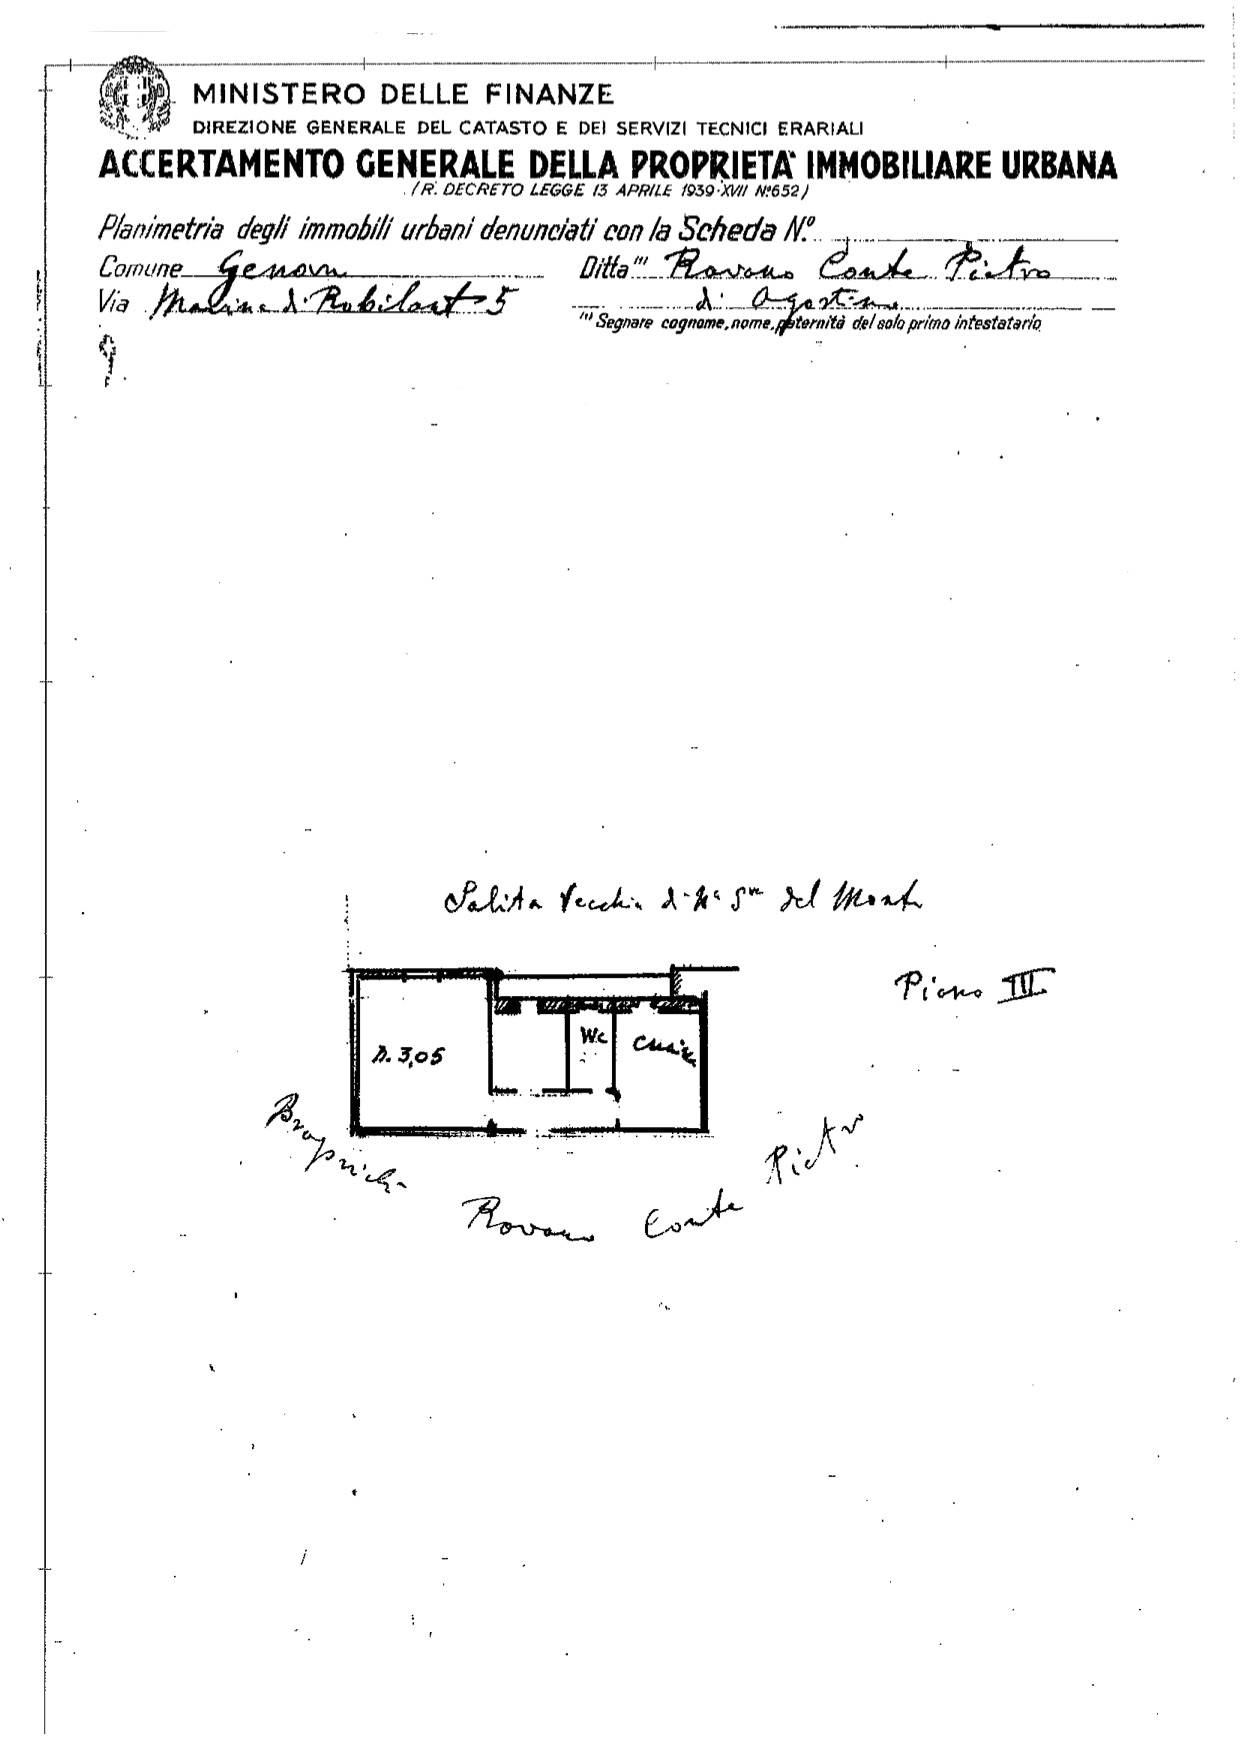 MINISTERO DELLE FINANZE
DIREZIONE GENERALE DEL CATASTO E DEI SERVIZI TECNICI ERARIALI
ACCERTAMENTO GENERALE DELLA PROPRIETÀ IMMOBILIARE URBANA
(R. DECRETO LEGGE 13 APRILE 1939-XVII N.º 652)
Planimetria degli immobili urbani denunciati con la Scheda N.º
Comune Genova Ditta (1) Rovano Conte Pietro
Via di Robilant 5 di Agostino
(1) Segnare cognome, nome, paternità del solo primo intestatario
Salita Vecchia di N.a S.ra del Monte
Piano III
Wc
cucina
h. 3,05
Proprietà Rovano Conte Pietro